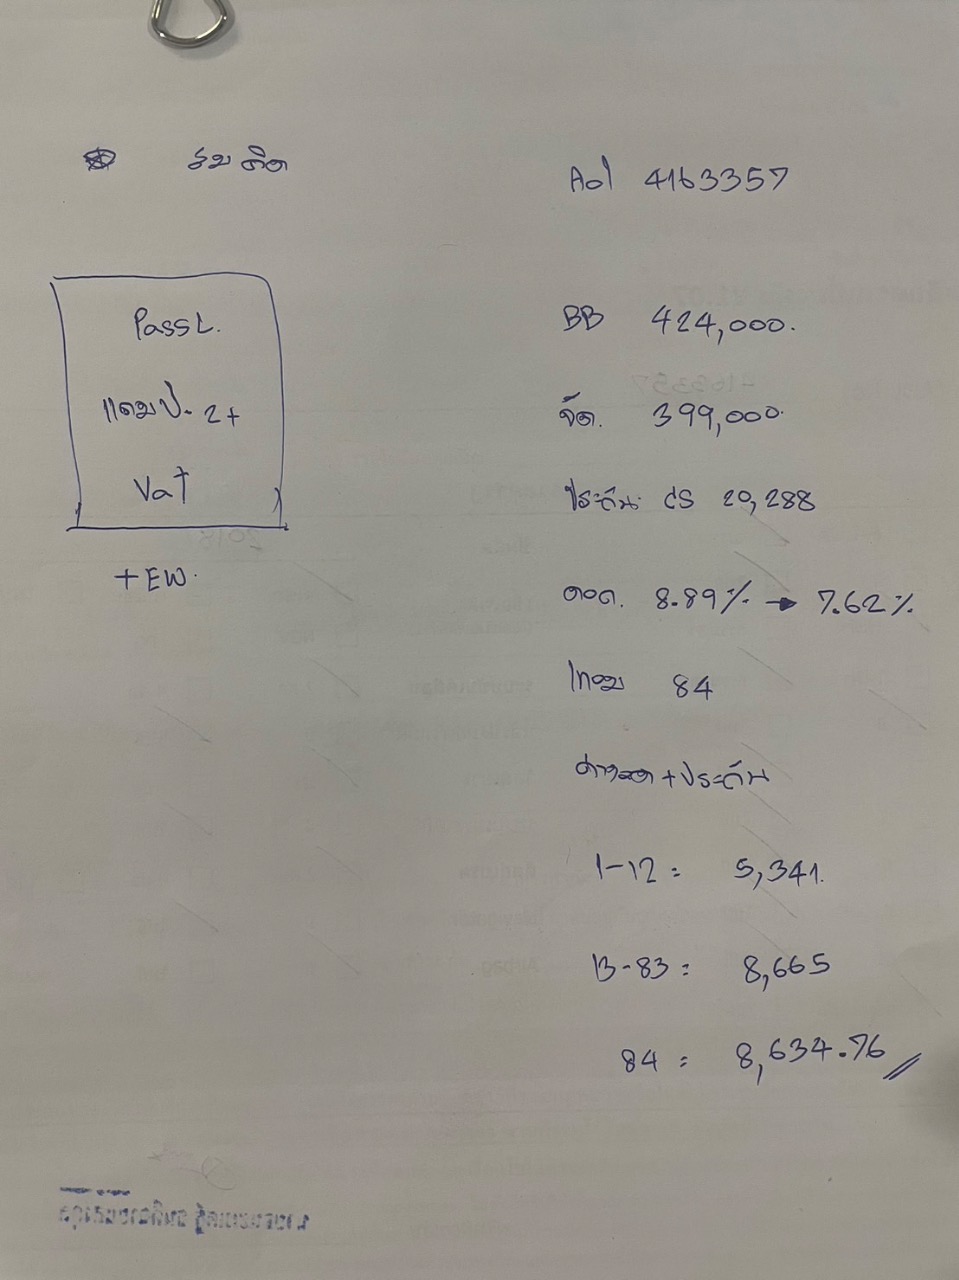 รูบ ติด
Aol 4163357
PassL.
แถมป. 2+
VaT
+ EW.
BB 424,000.
จัด. 399,000.
ประกัน CS 20,288
ดอก. 8.89% → 7.62%
เทอม 84
ค่างวด + ประกัน
1-12 = 5,341.
13-83 = 8,665
84 = 8,634.76